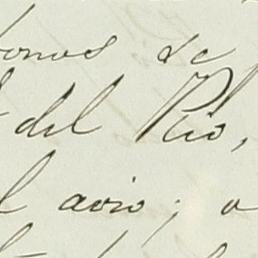 onos de
del Rio,
l avio; a